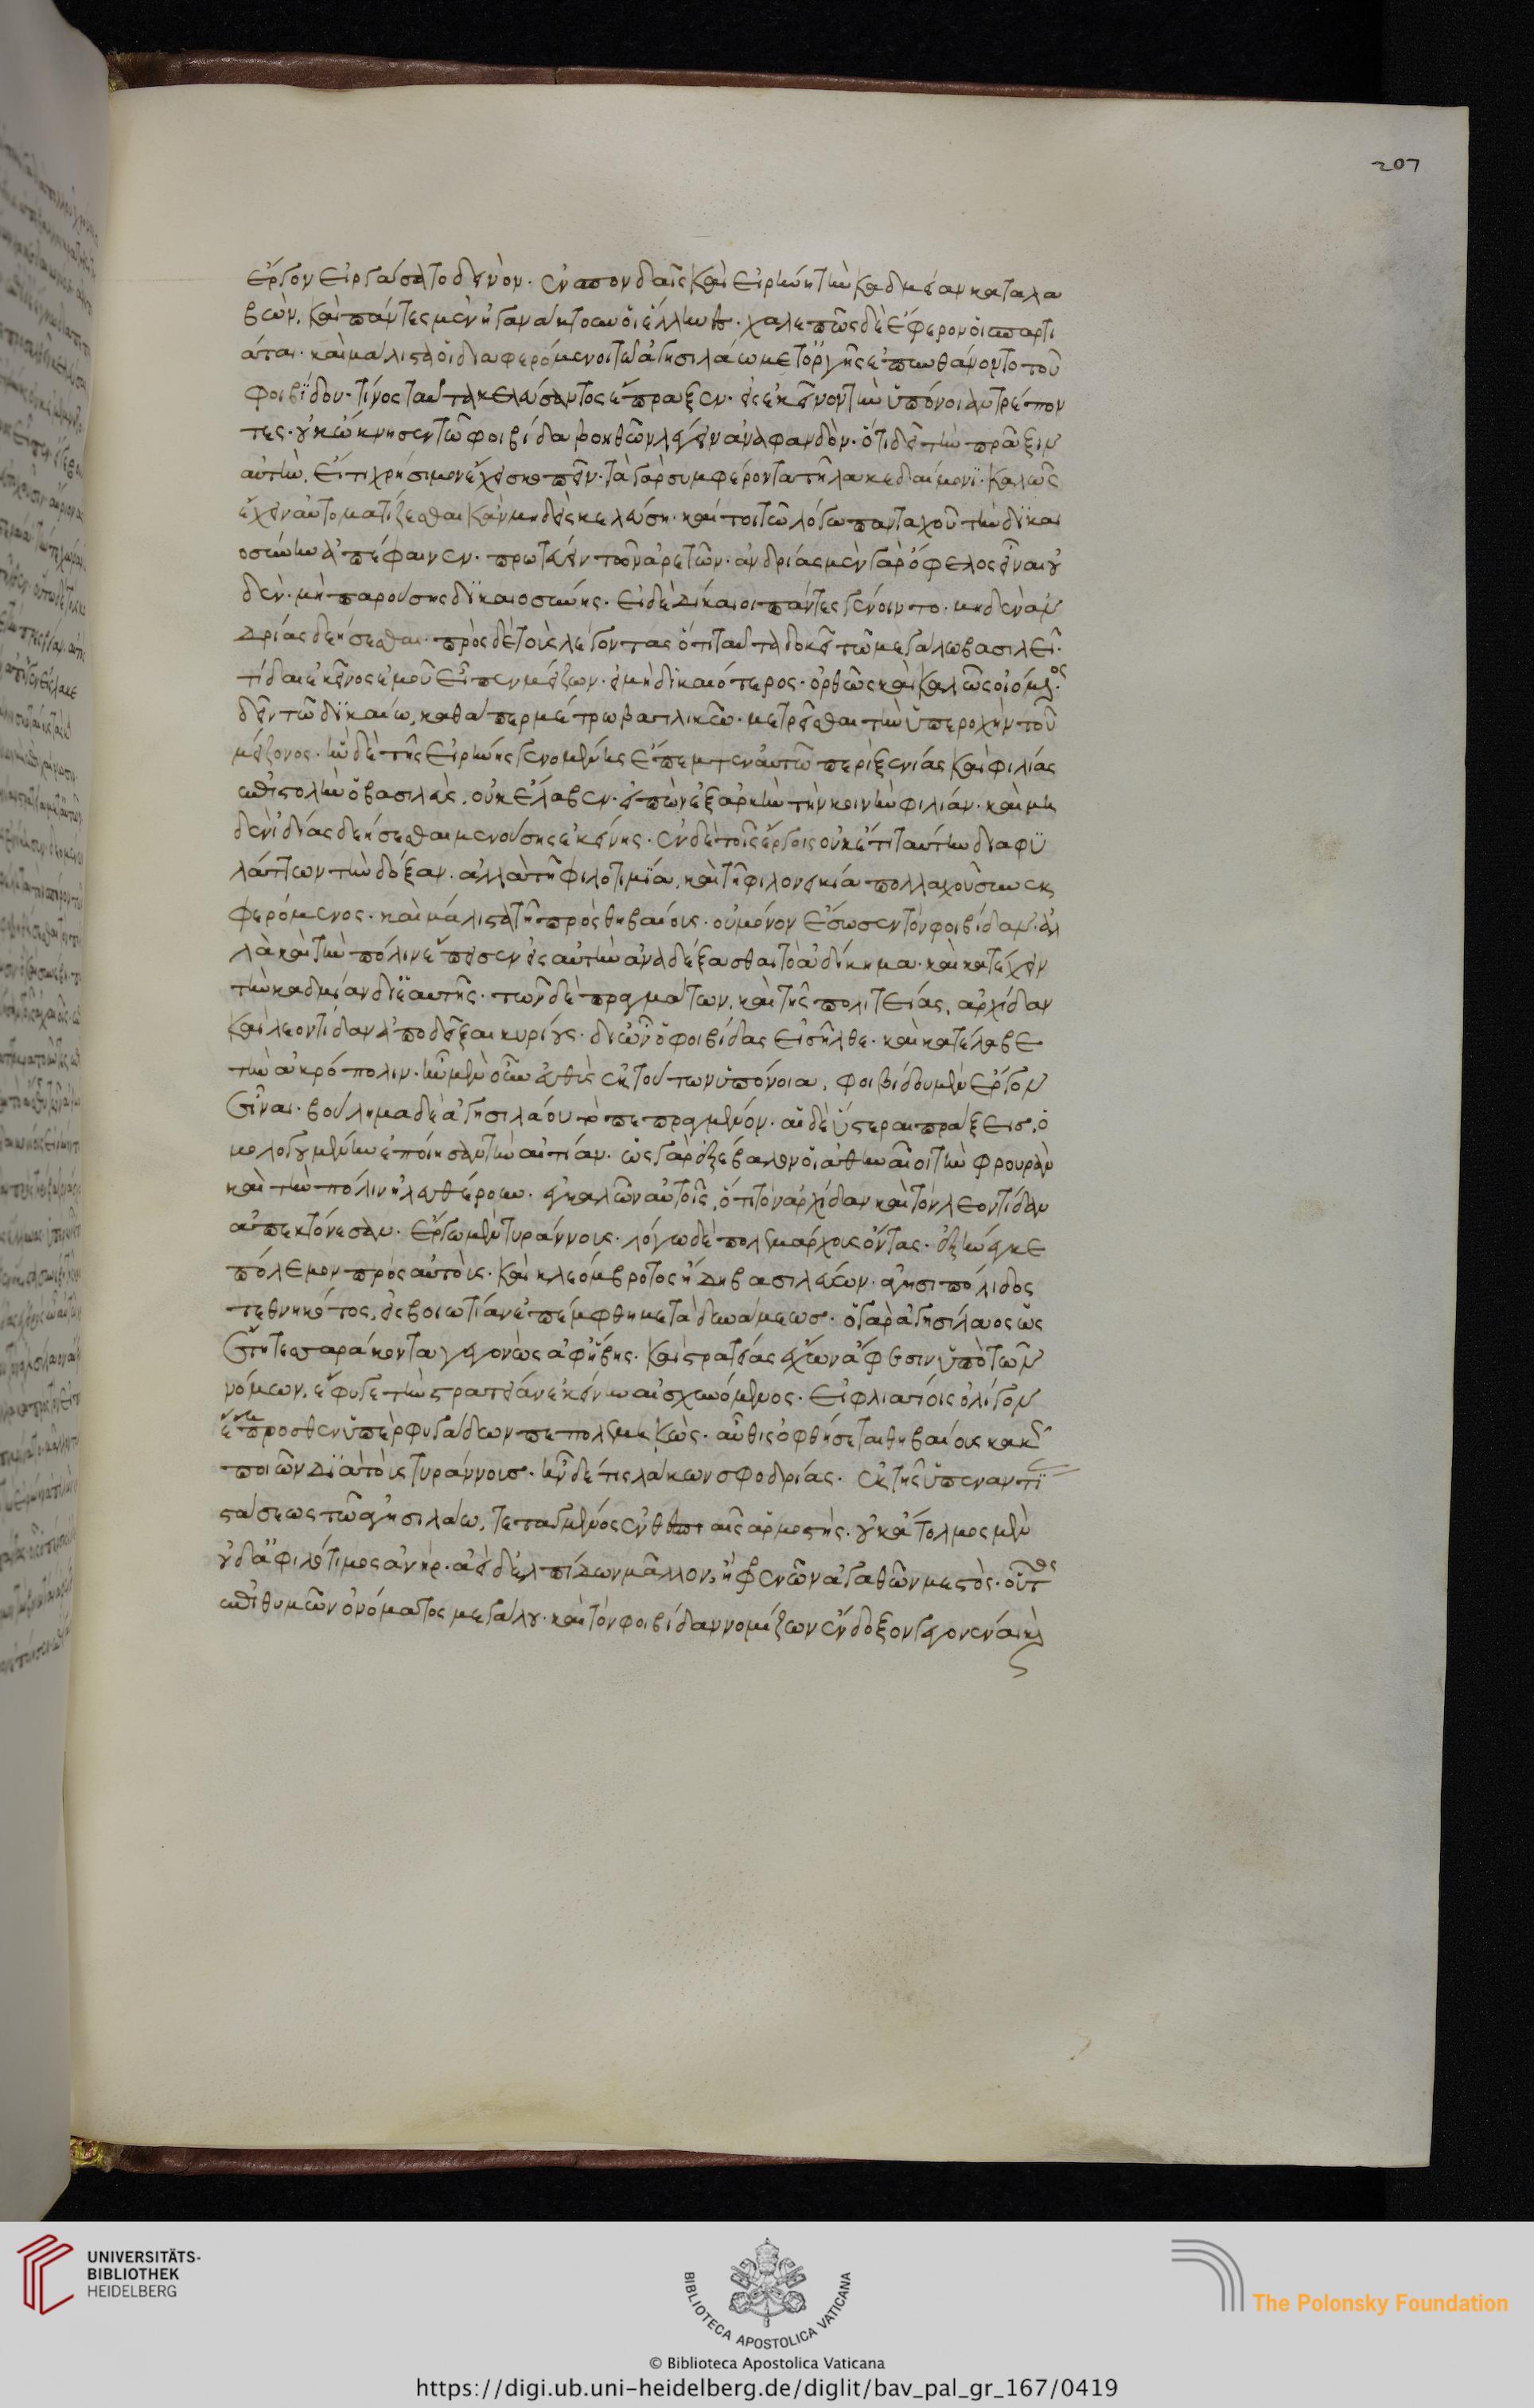 207
ἔργον εἰργάσατο δεινόν. ἐν σπονδαῖς καὶ εἰρήνη τὴν καδμείαν καταλα
βών. καὶ πάντες μὲν ἠγανάκτουν οἱ ἕλληνες. χαλεπῶς δὲ ἔφερον οἱ σπαρτι
άται. καὶ μάλιστα οἱ διαφερόμενοι τῶ ἀγησιλάω μετ' ὀργῆς ἐπυνθάνοντο τοῦ
φοιβίδου. τίνος ταῦτα κελεύσαντος ἔπραξεν. εἰς ἐκεῖνον τὴν ὑπόνοιαν τρέπον
τες. οὐκ ὤκνησεν τῶ φοιβίδα βοηθῶν λέγειν ἀναφανδόν. ὅτι δεῖ τὴν πρᾶξιν
αὐτὴν, εἴ τι χρήσιμον ἔχει σκοπεῖν. τὰ γὰρ συμφέροντα τῆ λακεδαίμονι. καλῶς
ἔχειν αὐτοματίζεσθαι κἂν μηδεὶς κελεύση. καίτοι τῶ λόγω πανταχοῦ τὴν δικαι
οσύνην ἀπέφαινεν. πρωτεύειν τῶν ἀρετῶν. ἀνδρίας μὲν γὰρ ὄφελος εἶναι οὐ
δέν. μὴ παρούσης δικαιοσύνης. εἰ δὲ δίκαιοι πάντες γένοιντο. μηδὲν ἀν
δρίας δεήσεσθαι. πρὸς δὲ τοὺς λέγοντας ὅτι ταῦτα δοκεῖ τῶ μεγάλω βασιλεῖ.
τί δαὶ ἐκεῖνος ἐμοῦ εἶπεν μείζων. εἰ μὴ δικαιότερος. ὀρθῶς καὶ καλῶς οἰόμενος
δεῖν τῶ δικαίω, καθάπερ μέτρω βασιλικῶ. μετρεῖσθαι τὴν ὑπεροχὴν τοῦ
μείζονος. ἣν δὲ τῆς εἰρήνης γενομένης ἔπεμπεν αὐτῶ περὶ ξενίας καὶ φιλίας
ἐπιστολὴν ὁ βασιλεὺς. οὐκ ἔλαβεν. εἰπὼν ἐξαρκεῖν τὴν κοινὴν φιλίαν. καὶ μη
δὲν ἰδίας δεήσεσθαι μενούσης ἐκείνης. ἐν δὲ τοῖς ἔργοις οὐκέτι ταύτην διαφυ
λάττων τὴν δόξαν. ἀλλὰ τῆ φιλοτιμία, καὶ τῆ φιλονεικία πολλαχοῦ συνεκ
φερόμενος. καὶ μάλιστα τῆ πρὸς θηβαίους. οὐ μόνον ἔσωσεν τὸν φοιβίδαν. ἀλ
λὰ καὶ τὴν πόλιν ἔπεισεν εἰς αὑτὴν ἀναδέξασθαι τὸ ἀδίκημα. καὶ κατέχειν
τὴν καδμείαν δι' ἑαυτῆς. τῶν δὲ πραγμάτων, καὶ τῆς πολιτείας, ἀρχίδαν
καὶ λεοντίδαν ἀποδεῖξαι κυρίους. δι' ὧν ὁ φοιβίδας εἰσῆλθε. καὶ κατέλαβε
τὴν ἀκρόπολιν. ἦν μὲν οὖν εὐθὺς ἐκ τούτων ὑπόνοια. φοιβίδου μὲν ἔργον
εἶναι. βούλημα δὲ ἀγησιλάου τὸ πεπραγμένον. αἱ δὲ ὕστεραι πράξεις, ὁ
μολογουμένην ἐποίησαν τὴν αἰτίαν. ὡς γὰρ ἐξέβαλον οἱ ἀθηναῖοι τὴν φρουρὰν
καὶ τὴν πόλιν ἠλευθέρουν. ἐγκαλῶν αὐτοῖς, ὅτι τὸν ἀρχίδαν καὶ τὸν λεοντίδαν
ἀπεκτόνεσαν. ἔργω μὲν τυράννους. λόγω δὲ πολεμάρχους ὄντας. ἐξήνεγκε
πόλεμον πρὸς αὐτοὺς. καὶ κλεόμβροτος ἤδη βασιλεύων. ἀγησιπόλιδος
τεθνηκότος, εἰς βοιωτίαν ἐπέμφθη μετὰ δυνάμεως. ὁ γὰρ ἀγησίλαος ὡς
ἔτη τεσσαράκοντα γεγονὼς ἀφ' ἥβης. καὶ στρατείας ἔχων ἄφεσιν ὑπὸ τῶν
νόμων. ἔφυγε τὴν στρατείαν ἐκείνην αἰσχυνόμενος. εἰ φλιασίοις ὀλίγον
ἔμπροσθεν ὑπὲρ φυγάδων πεπολεμηκὼς. αὖθις ὀφθήσεται θηβαίους κακῶς
ποιῶν διὰ τοὺς τυράννους. ἦν δέ τις λάκων σφοδρίας. ἐκ τῆς ὑπεναντι
στάσεως τῶ ἀγησιλάω, τεταγμένος ἐν θεσπιαῖς ἁρμοστής. οὐκ ἄτολμος μὲν
οὐδ' ἀφιλότιμος ἀνήρ. ἀεὶ δ' ἐλπίδων μᾶλλον, ἢ φρενῶν ἀγαθῶν μεστὸς. οὗτος
ἐπιθυμῶν ὀνόματος μεγάλου. καὶ τὸν φοιβίδαν νομίζων ἔνδοξον γεγονέναι καὶ
UNIVERSITÄTS-
BIBLIOTHEK
HEIDELBERG
BIBLIOTECA APOSTOLICA VATICANA
The Polonsky Foundation
© Biblioteca Apostolica Vaticana
https://digi.ub.uni-heidelberg.de/diglit/bav_pal_gr_167/0419